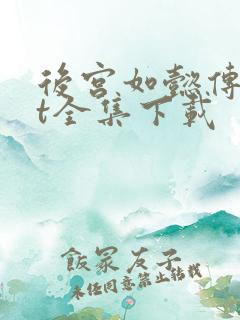 後宮如懿傳
t全集下載
飯冢友子
未經同意禁止轉載